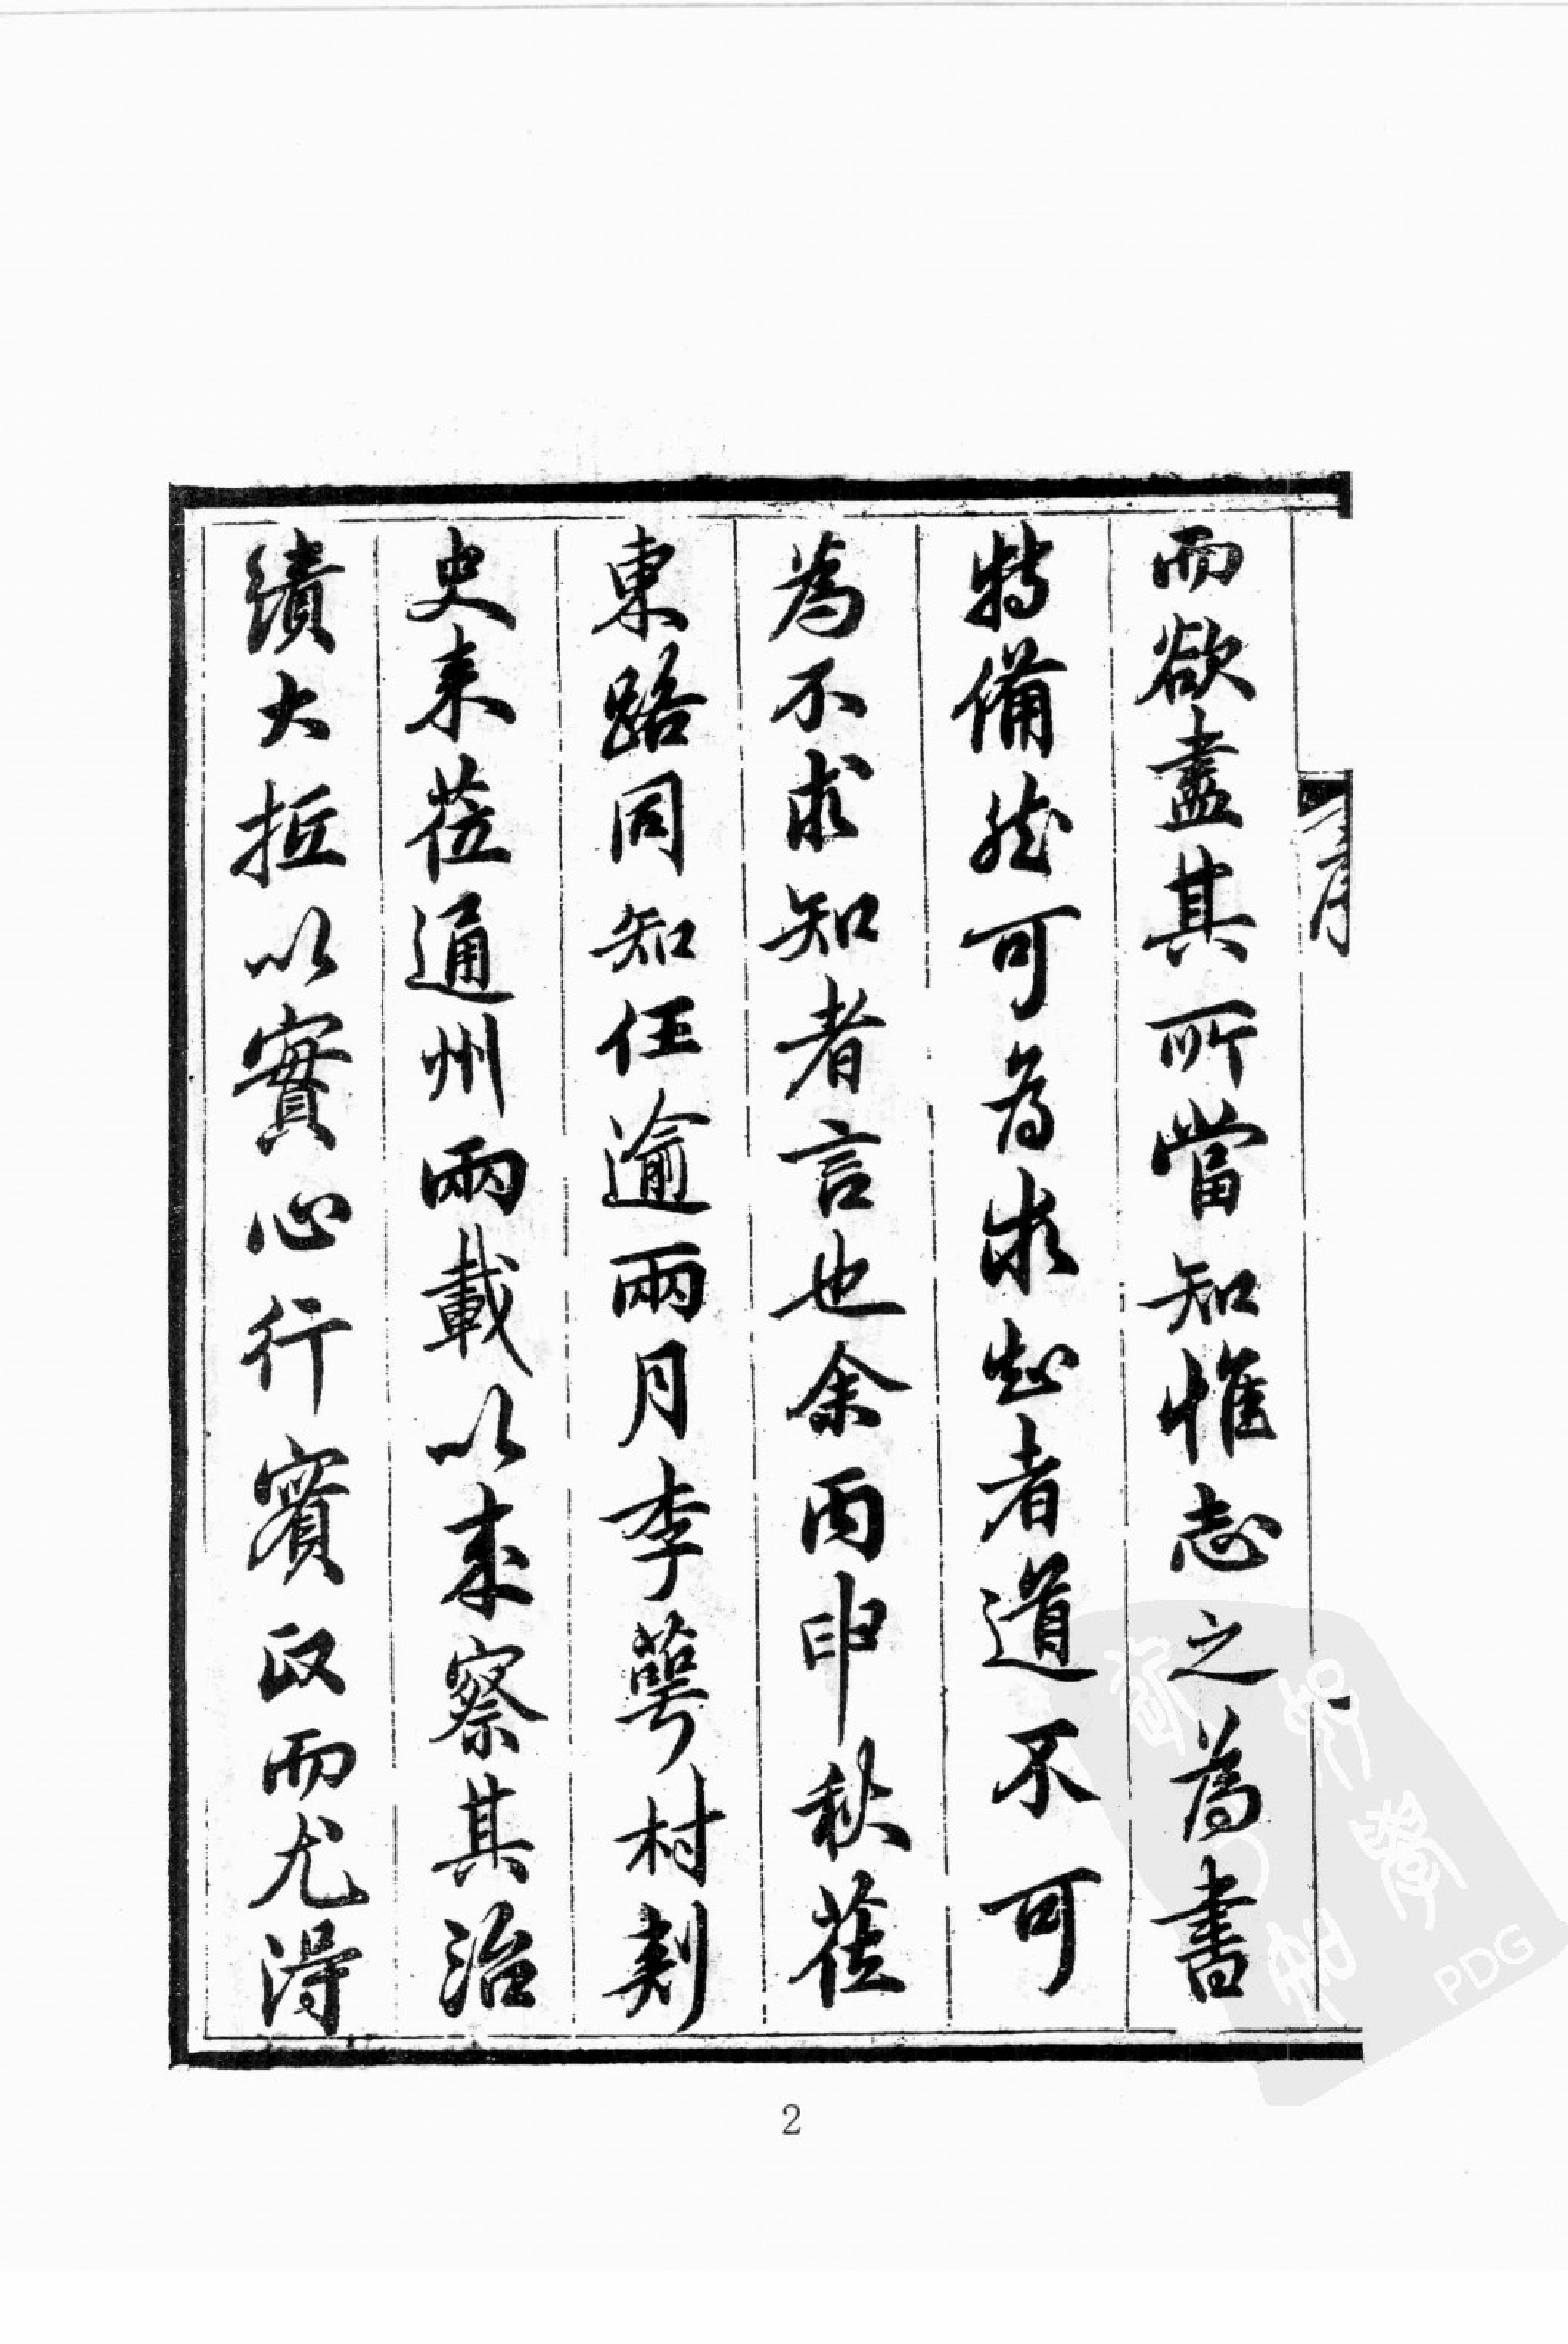 而欲盡其所當知惟志之為書
特備然可為求知者道不可
為不求知者言也余丙申秋莅
東路同知任逾兩月李萼村刺
史来莅通州兩載以來察其治
績大抵以實心行實政而尤得
序
2
PDG